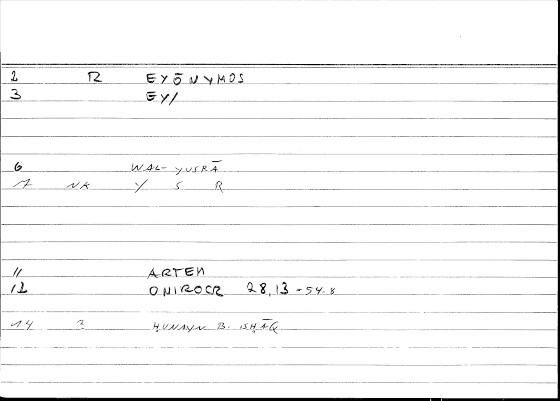 2 R EYŌNYMOS
3 EY/
6 WAL-YUSRĀ
7 NA Y S R
11 ARTEM
12 ONIROCR 28,13-54.8
14 2 ḤUNAYN B. ISḤĀQ